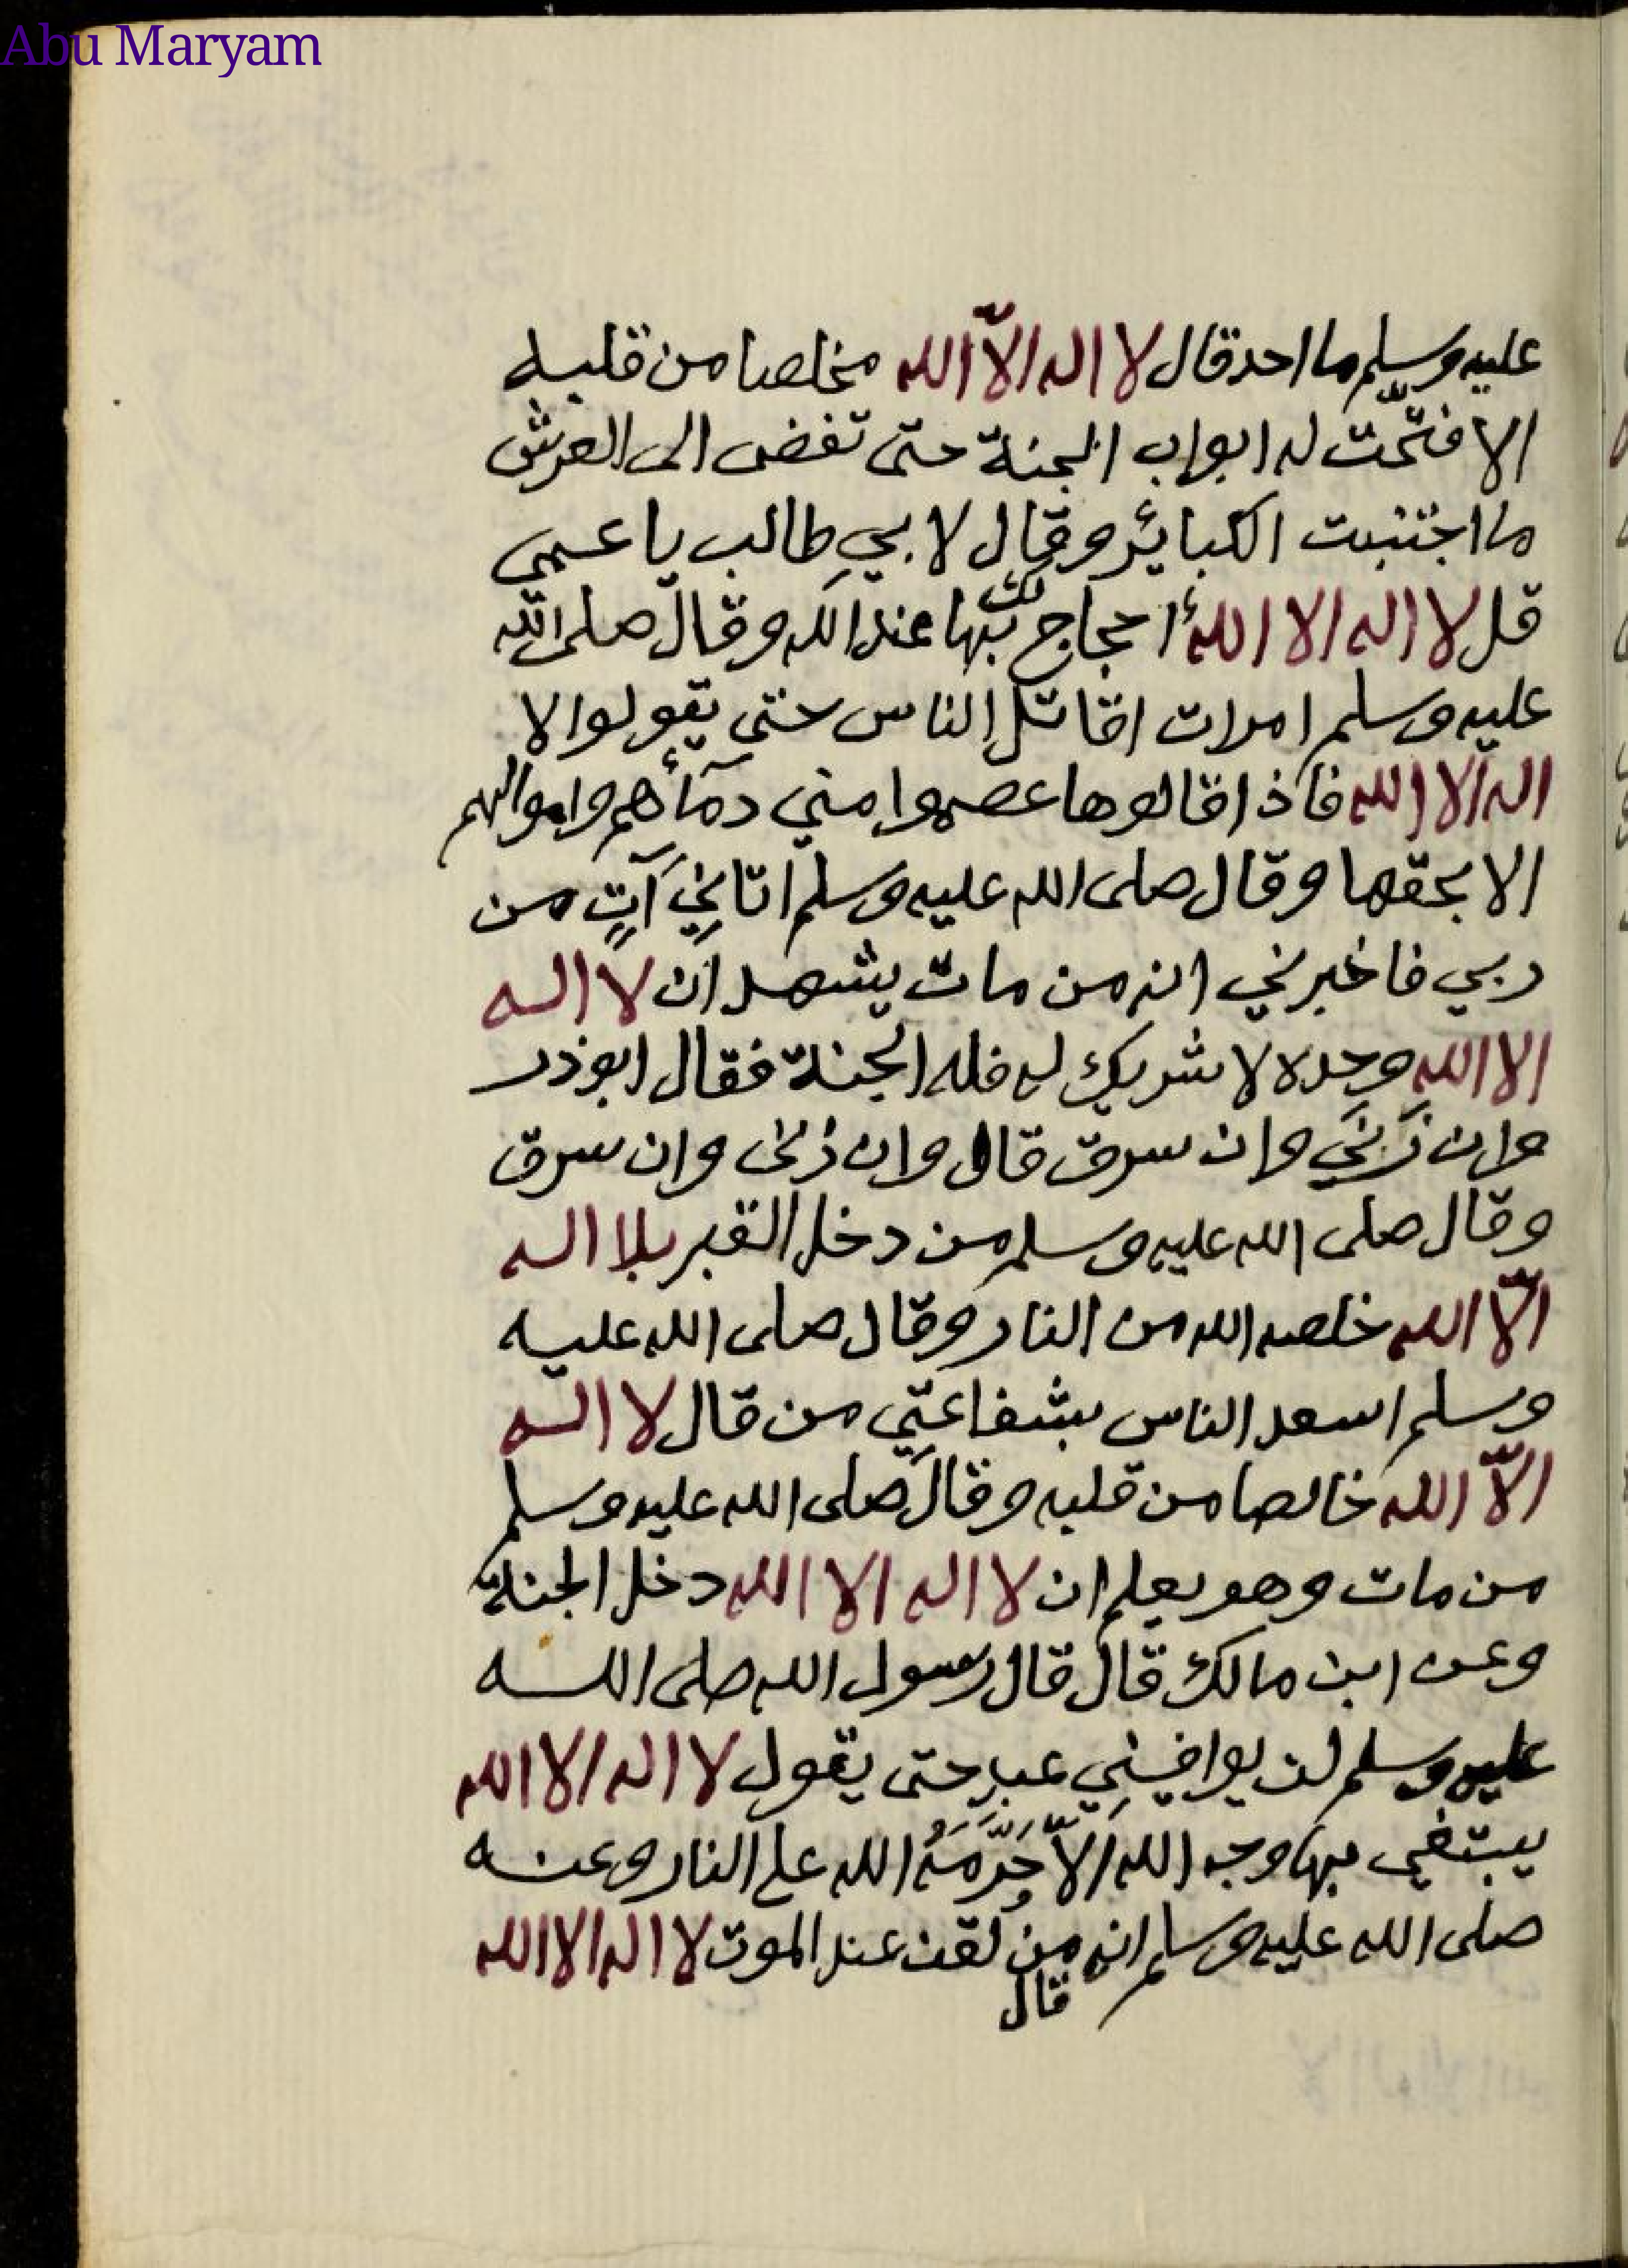 Abu Maryam
عليه وسلم ما احد قال لا اله الّا الله مخلصا من قلبه
الا فتّحت له ابواب الجنة حتى تفض الى العرش
ما اجتنبت الكبائر وقال لابي طالب يا عمي
قل لا اله الا الله أحجاج لك بها عند الله وقال صلى الله
عليه وسلم امرت اقاتل الناس حتى يقولوا لا
اله الا الله فاذا قالوها عصموا مني دمآئهم واموالهم
الا بحقها وقال صلى الله عليه وسلم اتانِيَ آتٍ من
ربي فاخبرني انه من مات يشهد ان لا اله
الا الله وحده لا شريك له فله الجنة فقال ابو ذر
وان زَنَي وان سرق قال وان زنى وان سرق
وقال صلى الله عليه وسلم من دخل القبر بلا اله
الّا الله خلصه الله من النار وقال صلى الله عليه
وسلم اسعد الناس بشفاعتِي من قال لا اله
الّا الله خالصا من قلبه وقال صلى الله عليه وسلم
من مات وهو يعلم ان لا اله الا الله دخل الجنة
وعن ابن مالك قال قال رسول الله صلى الله
عليه وسلم لن يوافيني عبد حتى يقول لا اله الا الله
يبتغي بها وجه الله الّا حَرَّمَهُ الله على النار وعنه
صلى الله عليه وسلم انه من لُقن عند الموت لا اله الا الله
قال